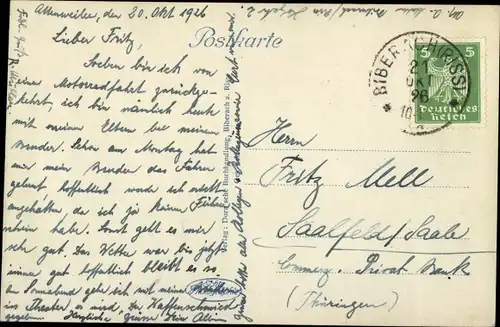 Attenweiler, den 20. Okt 1926
Lieber Fritz,
Soeben bin ich von
einer Motorradfahrt zurückge-
kehrt, ich bin nämlich heute
mit meinen Eltern bei meinem
Bruder. Schon am Montag hat
mir mein Bruder das Fahren
gelernt, hoffentlich werde ich nicht
angehalten, da ich ja keinen Führer-
schein habe. Sonst geht es mir
sehr gut. Das Wetter war bis jetzt
immer gut hoffentlich bleibt es so.
am Sonnabend gehe ich mit meiner
ins Theater es wird, der Waffenschmied
gegeben. Herzliche Grüsse Dein Albin
Postkarte
Verlag: Dorn'sche Buchhandlung, Biberach a. Riss
BIBERACH (RISS)
21
OKT
26
10-
5 5
Deutsches
Reich
Herrn
Fritz Mell
Saalfeld/Saale
Commerz. Privat Bank
(Thüringen)